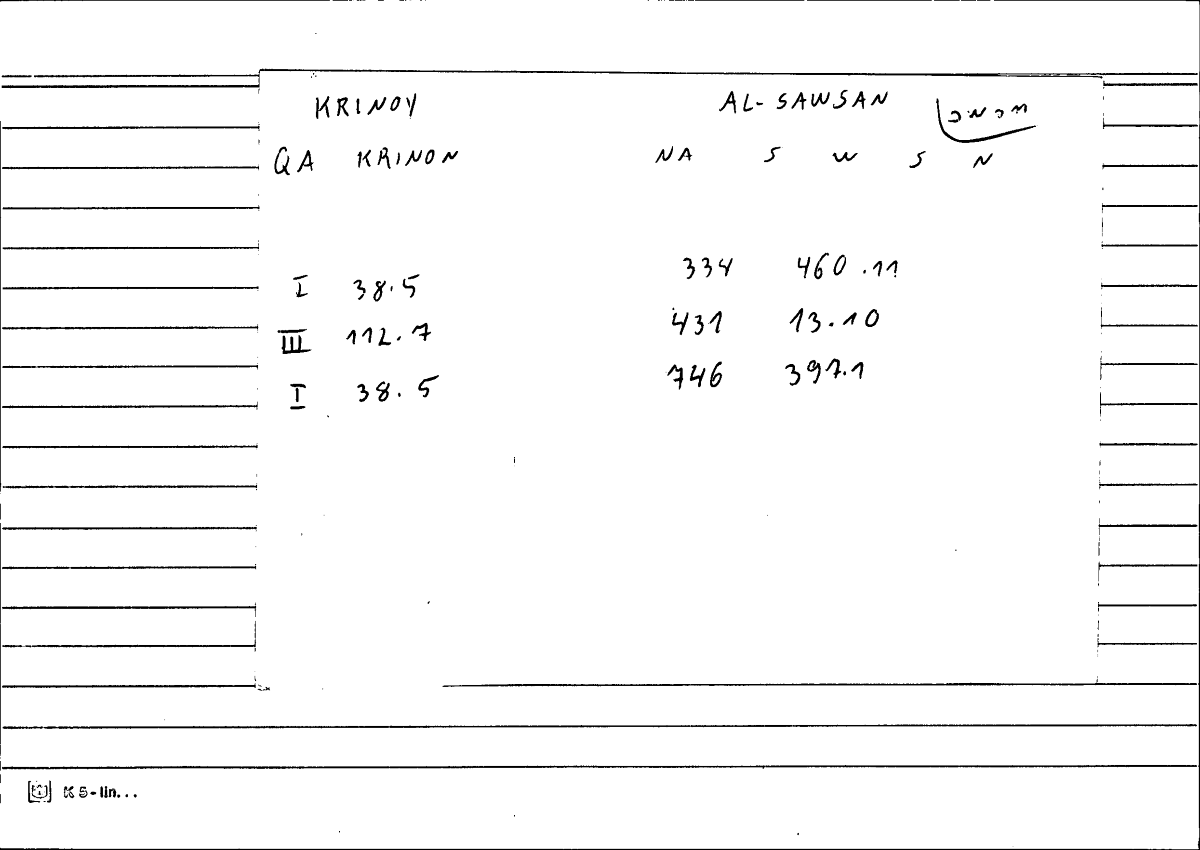 KRINOY AL-SAWSAN
QA KRINON NA S W S N
I 38.5 334 460.11
III 112.7 431 13.10
I 38.5 746 397.1
K 5-lin...